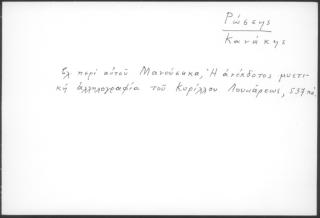 Ρώσσης
Κανάκης
βλ. περὶ αὐτοῦ Μανούσακα, Ἡ ἀνέκδοτος μυστι-
κή ἀλληλογραφία τοῦ Κυρίλλου Λουκάρεως, 537 κἑ.